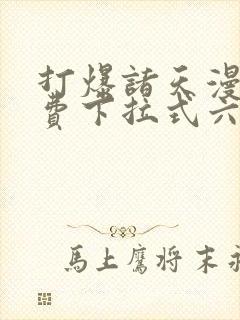 打爆諸天漫
費下拉式六
馬上鷹將末